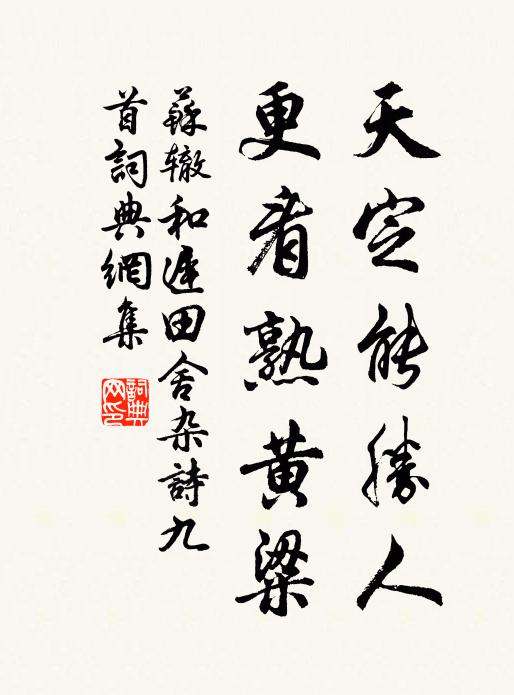 天定能勝人
更看熟黄粱
蘇辙和遲田舍杂詩九
首詞典網集
詞典
网印